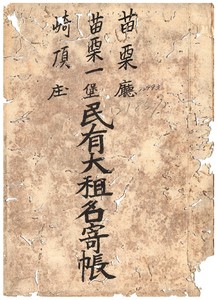 苗栗廳
苗栗一堡民有大租名寄帳
崎頂庄